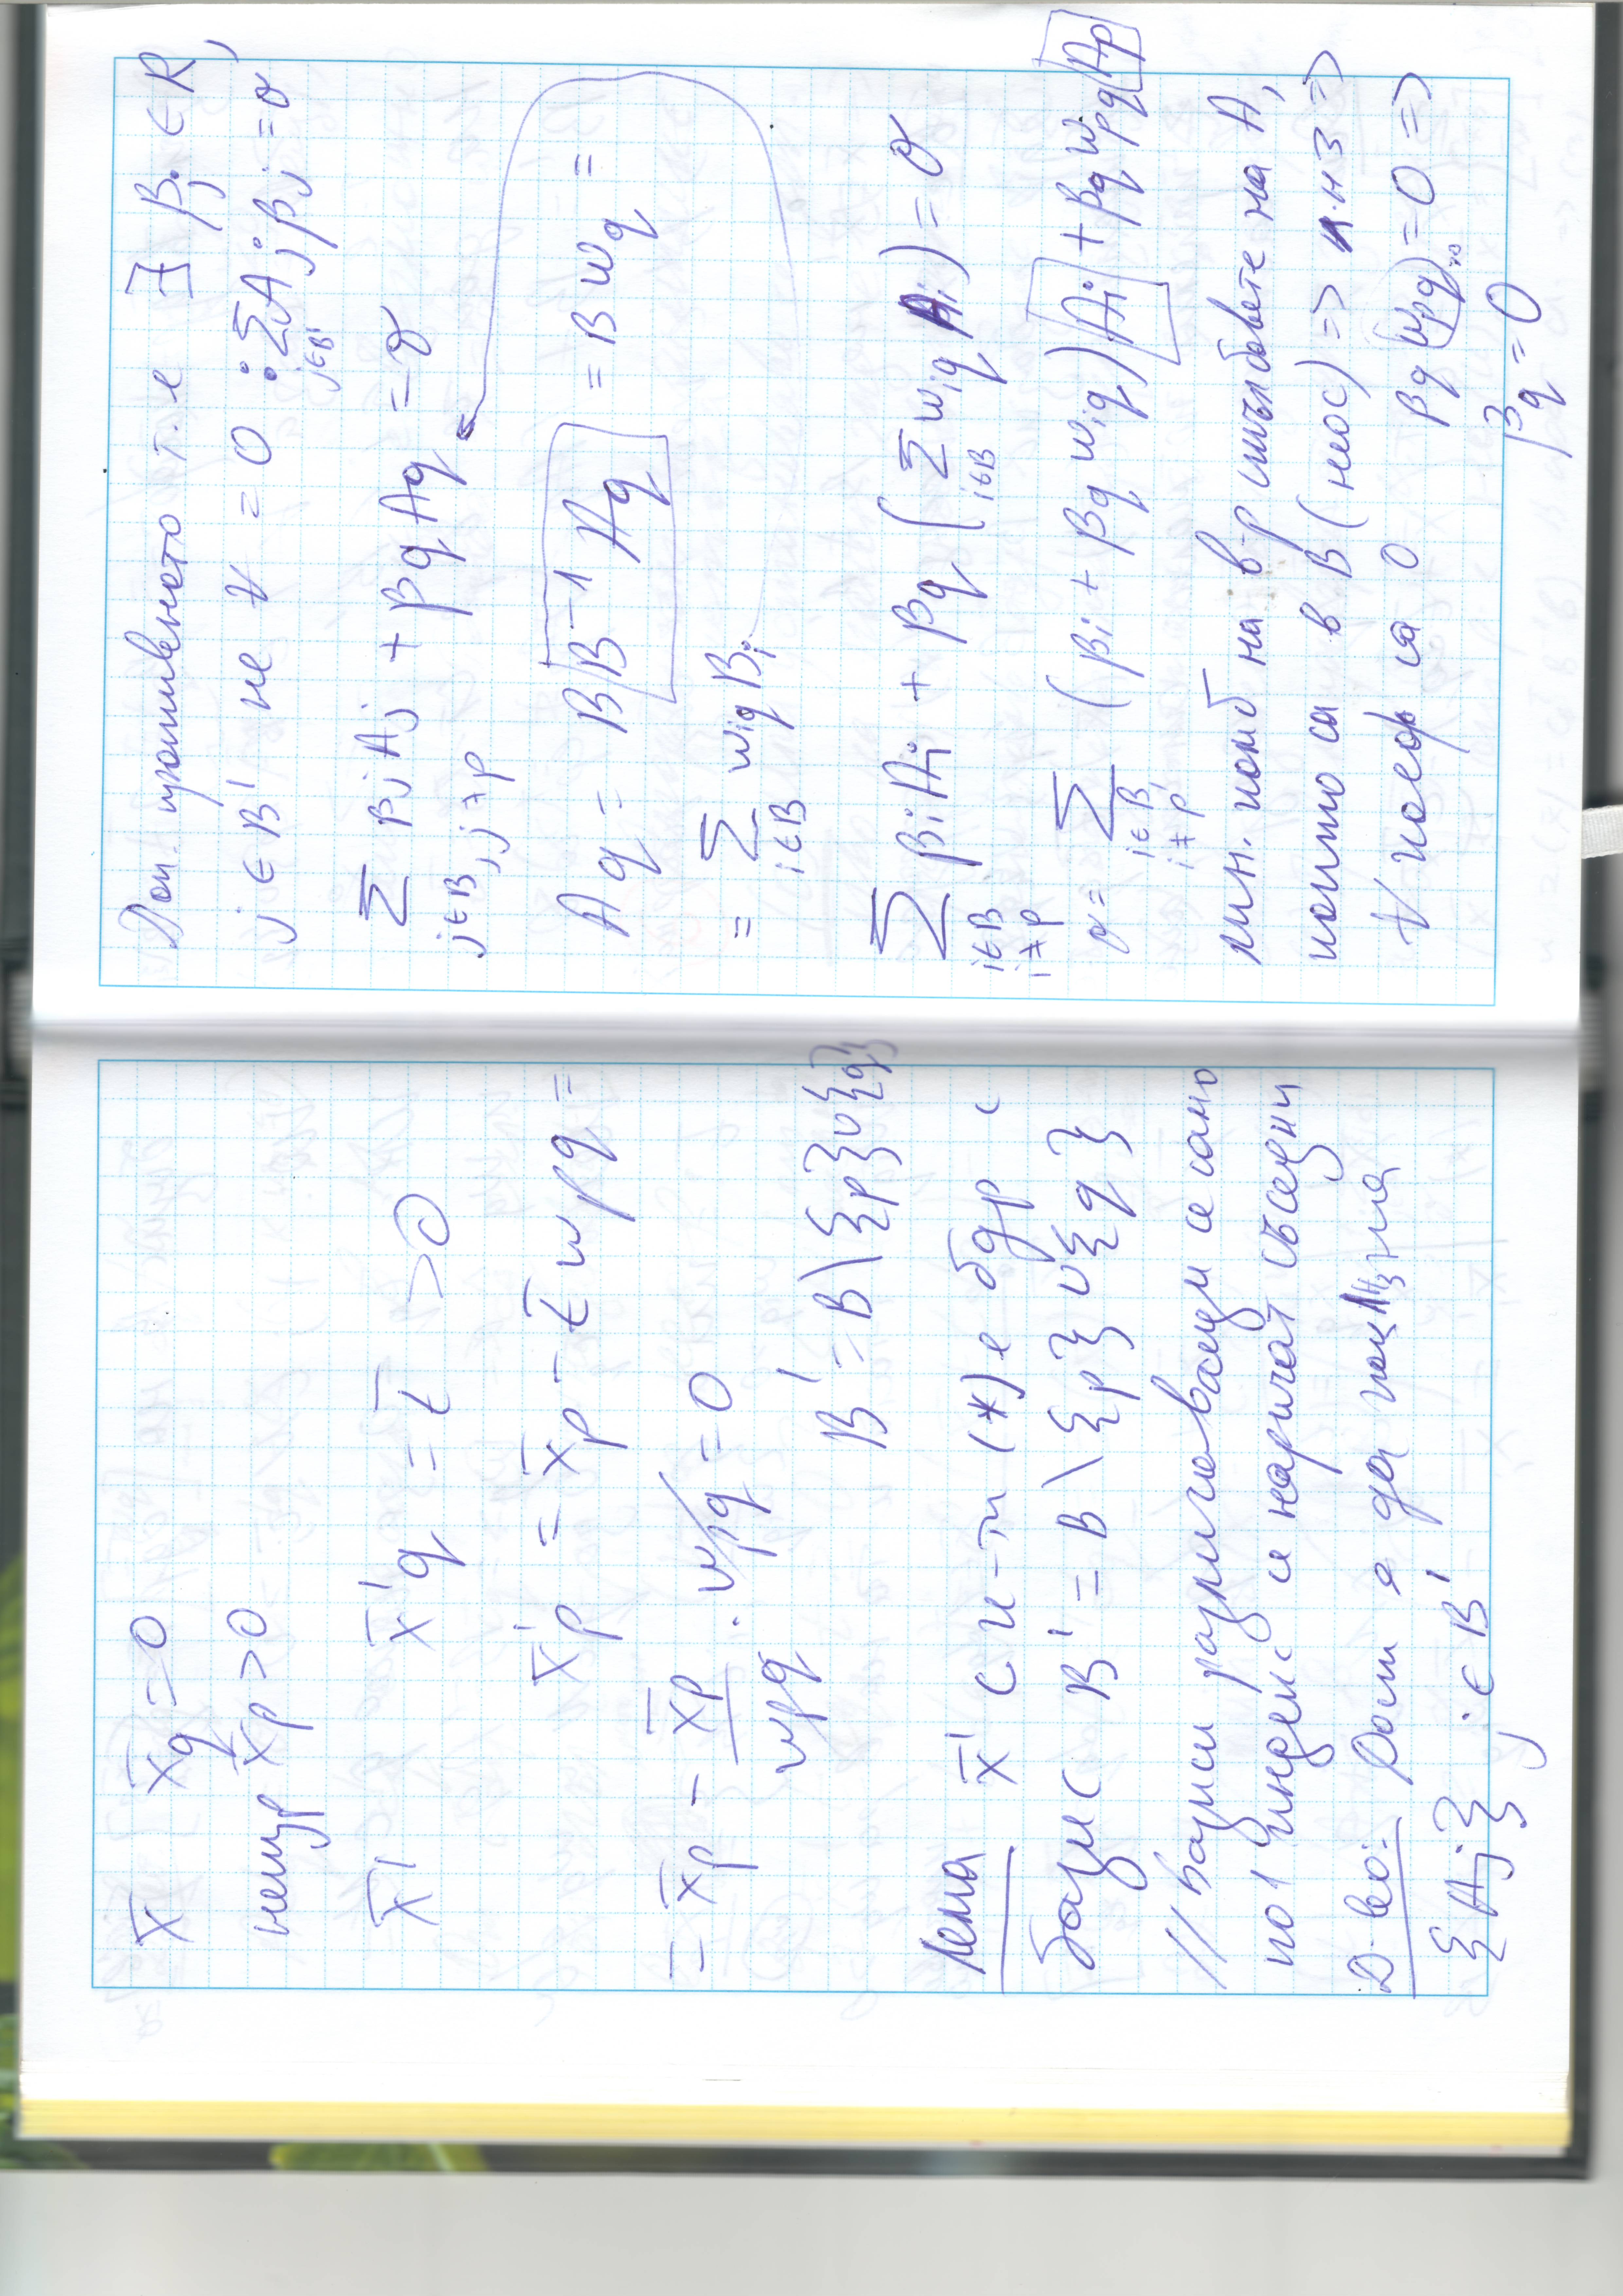 x̄ x̄q = 0
x̄p > 0
x̄' x̄'q = t̄ > 0
x̄'p = x̄p − t̄ wpq =
= x̄p − x̄p/wpq · wpq = 0
B' = B \ {p} ∪ {q}
Лема x̄' с к-ти (*) е бдр с
базис B' = B \ {p} ∪ {q}
// Базиси различаващи се само
по 1 индекс се наричат съседни
Д-во: Дост е да пок ЛНЗ на
{Aj} j ∈ B'
Доп. противното т.е ∃ βj ∈ R,
j ∈ B' не ∀ = 0 : Σ j∈B' Aj βj = 𝟘
Σ j∈B, j≠p βj Aj + βq Aq = 𝟘
Aq = B B⁻¹ Aq = B wq =
= Σ i∈B wiq Bi
Σ i∈B i≠p βi Ai + βq (Σ i∈B wiq Ai) = 𝟘
𝟘 = Σ i∈B, i≠p (βi + βq wiq) Ai + βq wpq Ap
лин. комб на в-р стълбовете на A,
които са в B (нос) => лнз =>
∀ коеф са 0 βq wpq = 0 =>
≠0
βq = 0